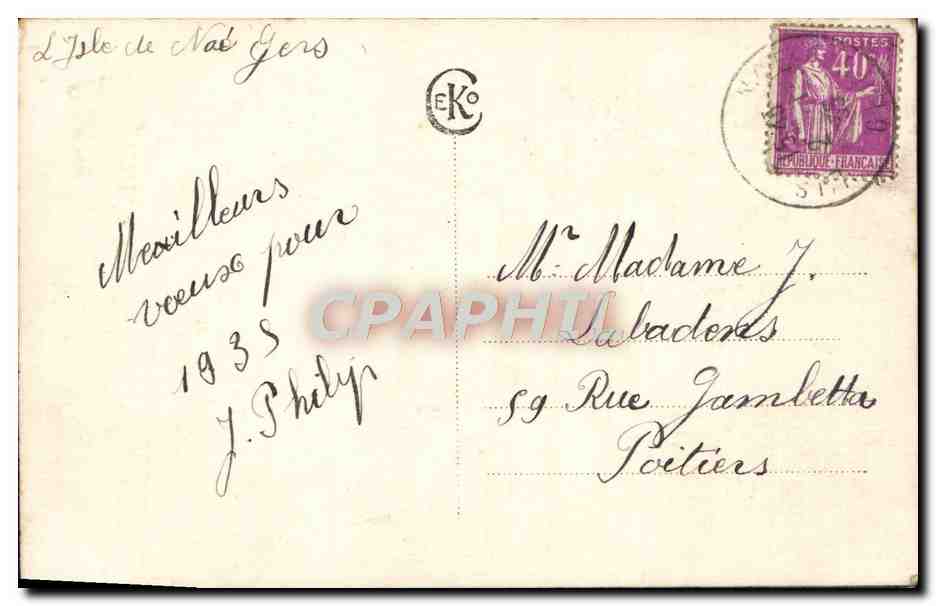 L'Isle de Noé Gers
CEKO
POSTES
40c
REPUBLIQUE-FRANCAISE
Meailleurs
voeux pour
1935
J. Philip
CPAPHIL
Mr. Madame J.
Labadens
59 Rue Gambetta
Poitiers